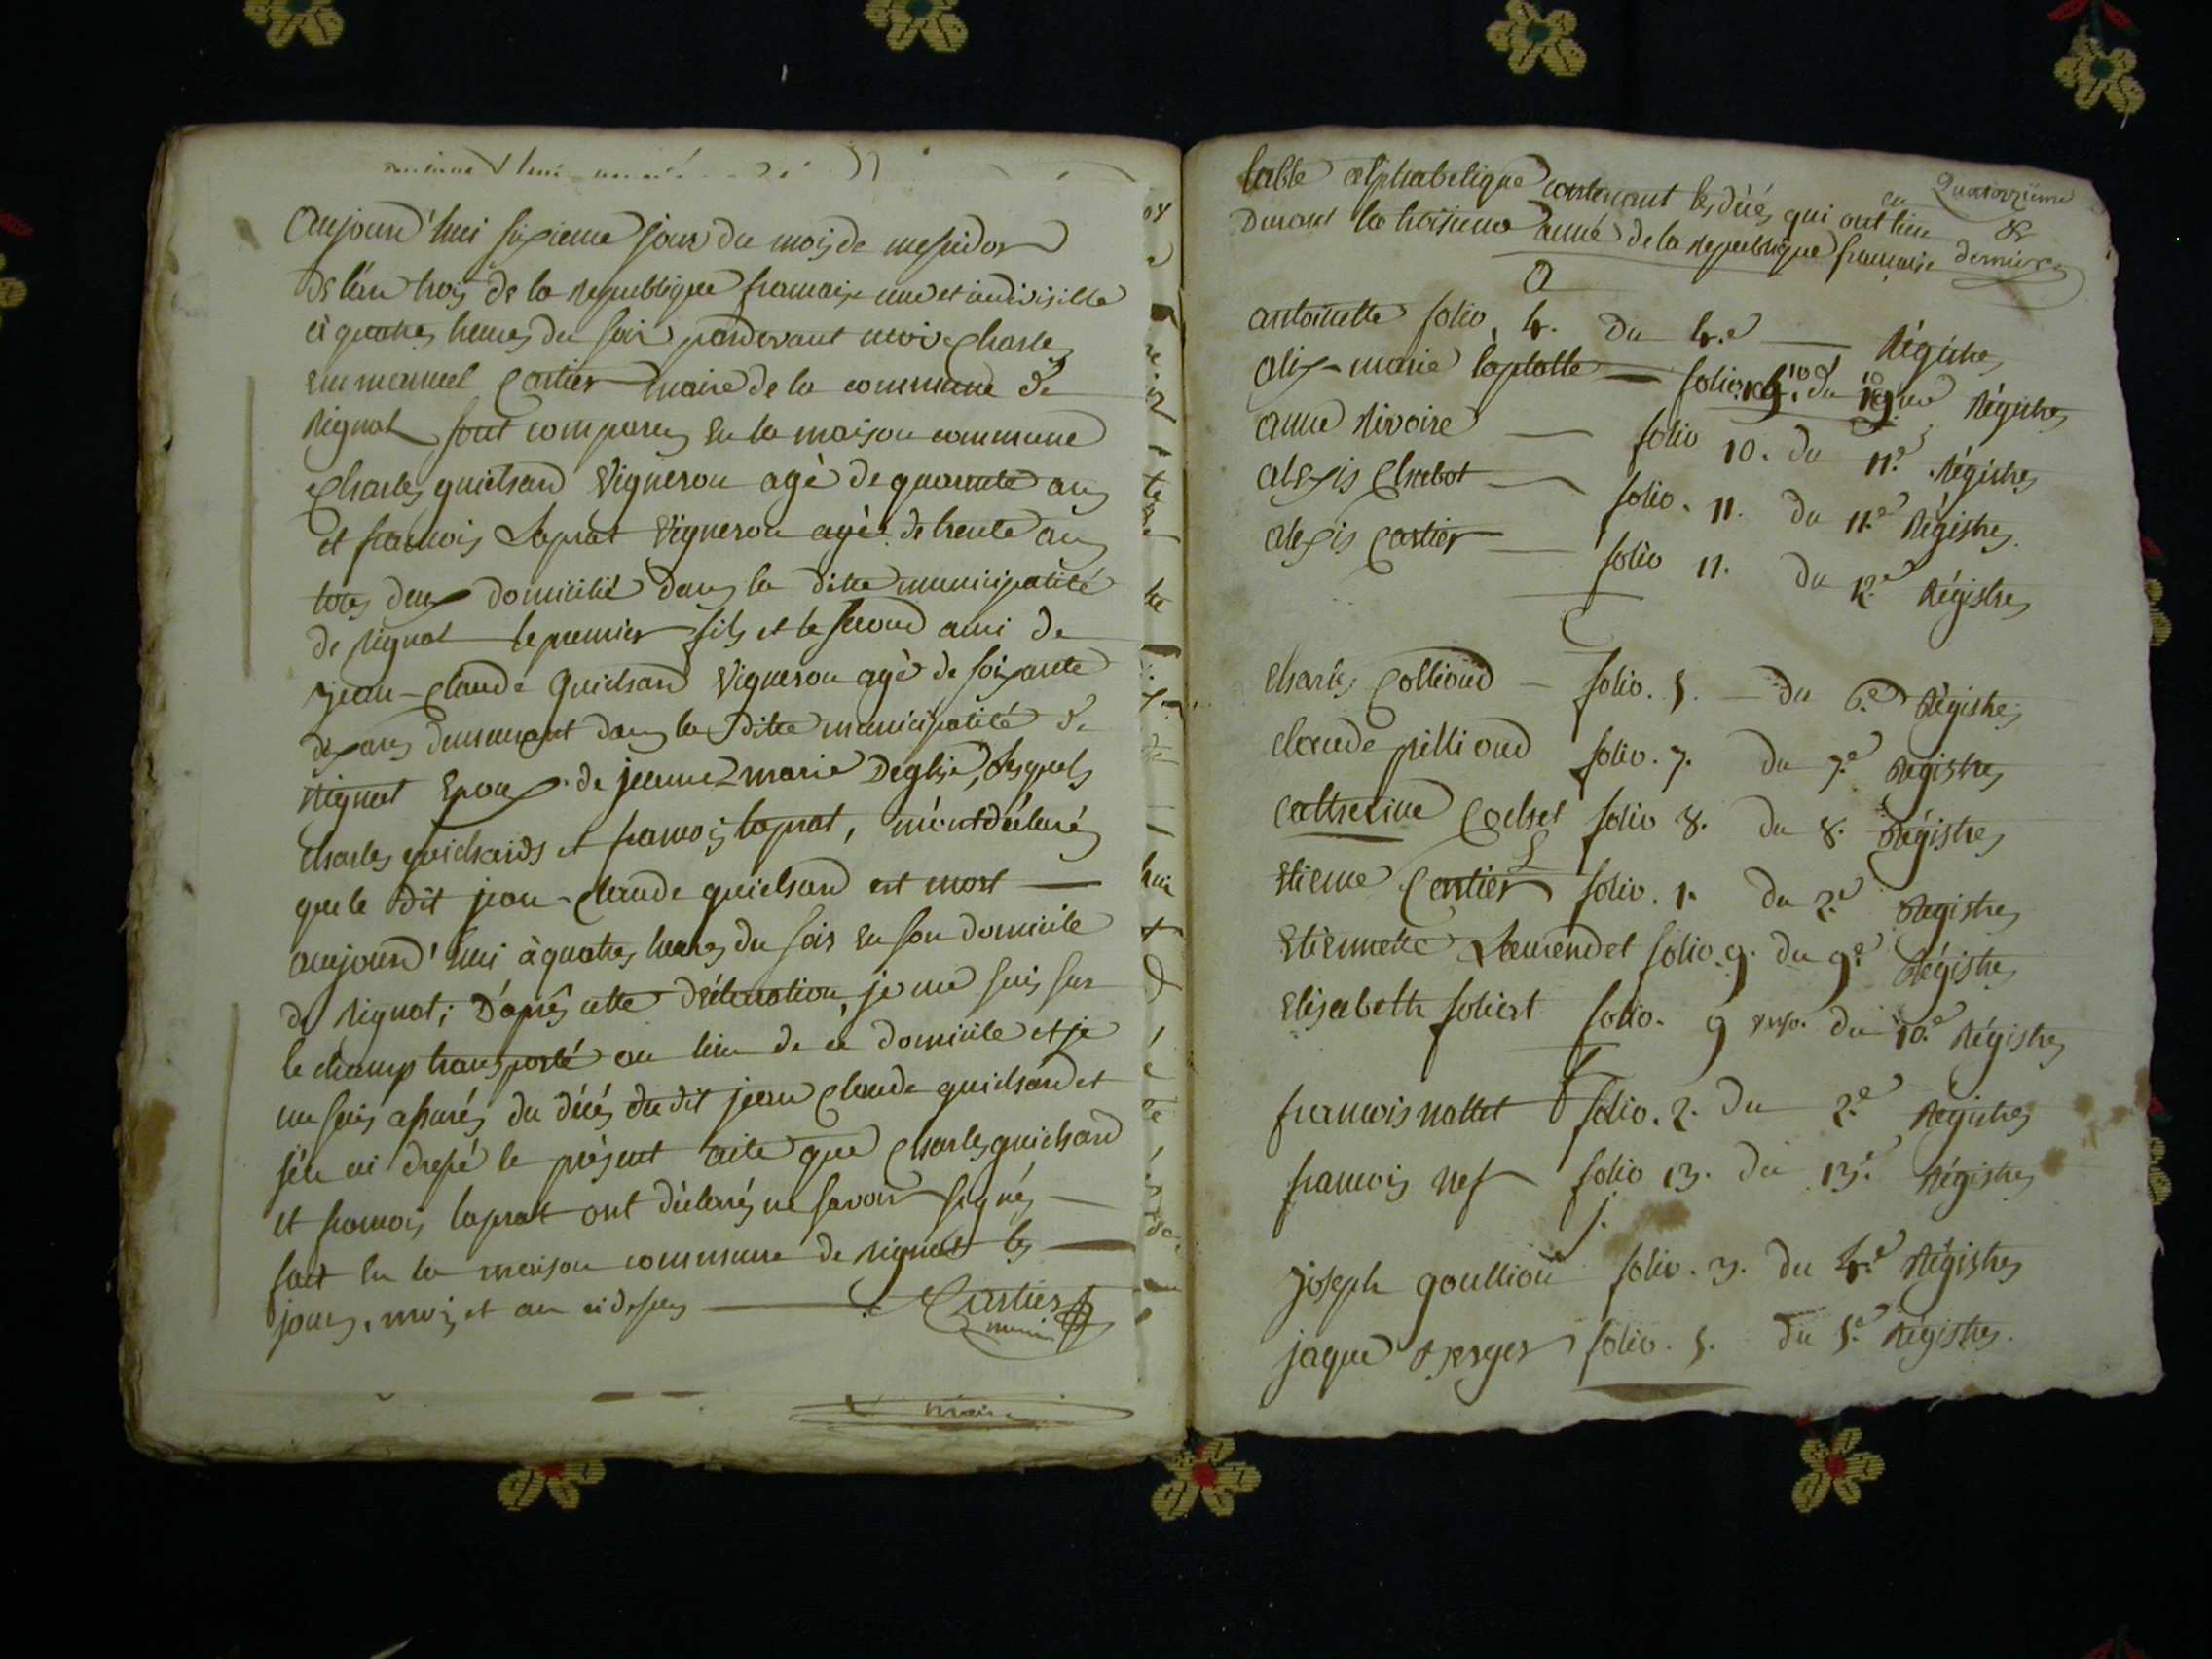 Aujourd'hui sixieme jour du mois de messidor
de l'an trois de la republique francaise une et indivisible
à quatres heures du soir pardevant moi Charles
emmanuel Cartier maire de la commune de
Rignat, sont comparus en la maison commune
Charles guichard vigneron agè de quarante ans
et francois Laprat vigneron agè de trente ans
tous deux domicilié dans la ditte municipalité
de rignat le premier fils et le second ami de
jean-claude Guichard vigneron agè de soixante
dix ans demeurant dans la ditte municipalité de
rignat epoux de jeanne marie Deglise, lesquels
charles guichards et francois laprat, m'ont déclarés
que le dit jean-claude guichard est mort
aujourd'hui à quatres heures du soir en son domicile
de rignat; D'après cette déclaration, je me suis sur
le champ transporté au lieu de ce domicile et je
me suis assurés du décés du dit jean claude guichard et
j'en ai dressé le présent acte que Charles guichard
et francois laprat ont déclarés ne savoir signés
fait en la maison commune de rignat les
jours, mois et an ci dessus Cartier
maire
maire
table alphabetique contenant les décés qui ont eu lieu
Durant la troisieme anné de la republique francaise
Quatorzieme
&
dernier
a
antoinette folio 4. du 4.e Régistres
alix-marie laplatte folio du Régistres
anne rivoire folio 10. du 11.e Régistres
alexis Chabot folio. 11. du 11.e Régistres.
alexis Cartier folio 11. du 12.e Régistres
C
charles Collioud folio. 5. du 6.e Régistres
claude pillioud folio. 7. du 7.e Régistres
catherine Cochet folio 8. du 8. Régistres
E
etiene Cartier folio. 1. du 2.e Régistres
etiennette folio. 9. du 9.e Régistres
elisabeth foliest folio. 9 verso. du 10.e Régistres
f
francois nallet folio. 2. du 2.e Régistres
francois nef folio 13. du 13.e Régistres
j.
joseph goullion folio. 3. du 4.e Régistres
jaque folio. 5. du 5.e Régistres.